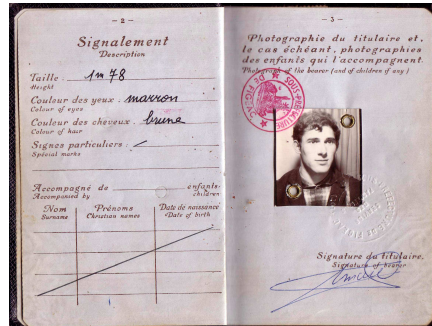 - 2 -
Signalement
Description
Taille : 1m78
Height
Couleur des yeux : marron
Colour of eyes
Couleur des cheveux : brune
Colour of hair
Signes particuliers :
Special marks
Accompagné de enfants
Accompanied by children
Nom Prénoms Date de naissance
Surname Christian names Date of birth
- 3 -
Photographie du titulaire et,
le cas échéant, photographies
des enfants qui l'accompagnent.
Photograph of the bearer (and of children if any)
SOUS-PRÉFECTURE
Signature du titulaire.
Signature of bearer